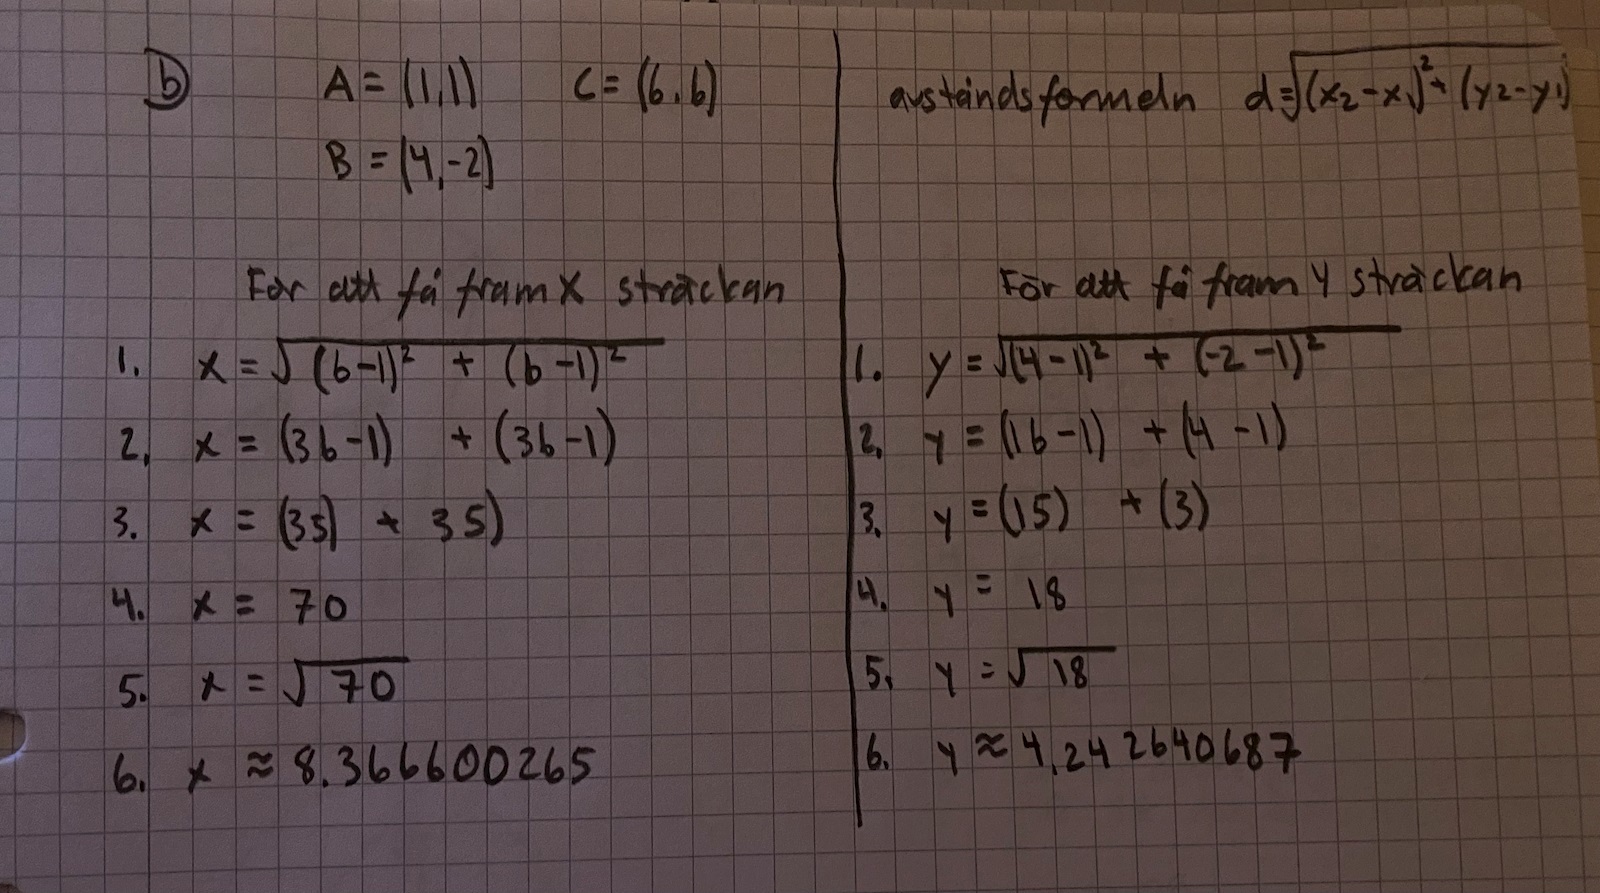 b) A = (1,1) C = (6.6)
B = (4,-2)
För att få fram X sträckan
1. x = √(6-1)² + (6-1)²
2. x = (36-1) + (36-1)
3. x = (35) + 35)
4. x = 70
5. x = √70
6. x ≈ 8.366600265
avståndsformeln d=√(x2-x1)²+(y2-y1)
För att få fram Y sträckan
1. y = √(4-1)² + (-2-1)²
2. y = (16-1) + (4-1)
3. y = (15) + (3)
4. y = 18
5. y = √18
6. y ≈ 4,242640687